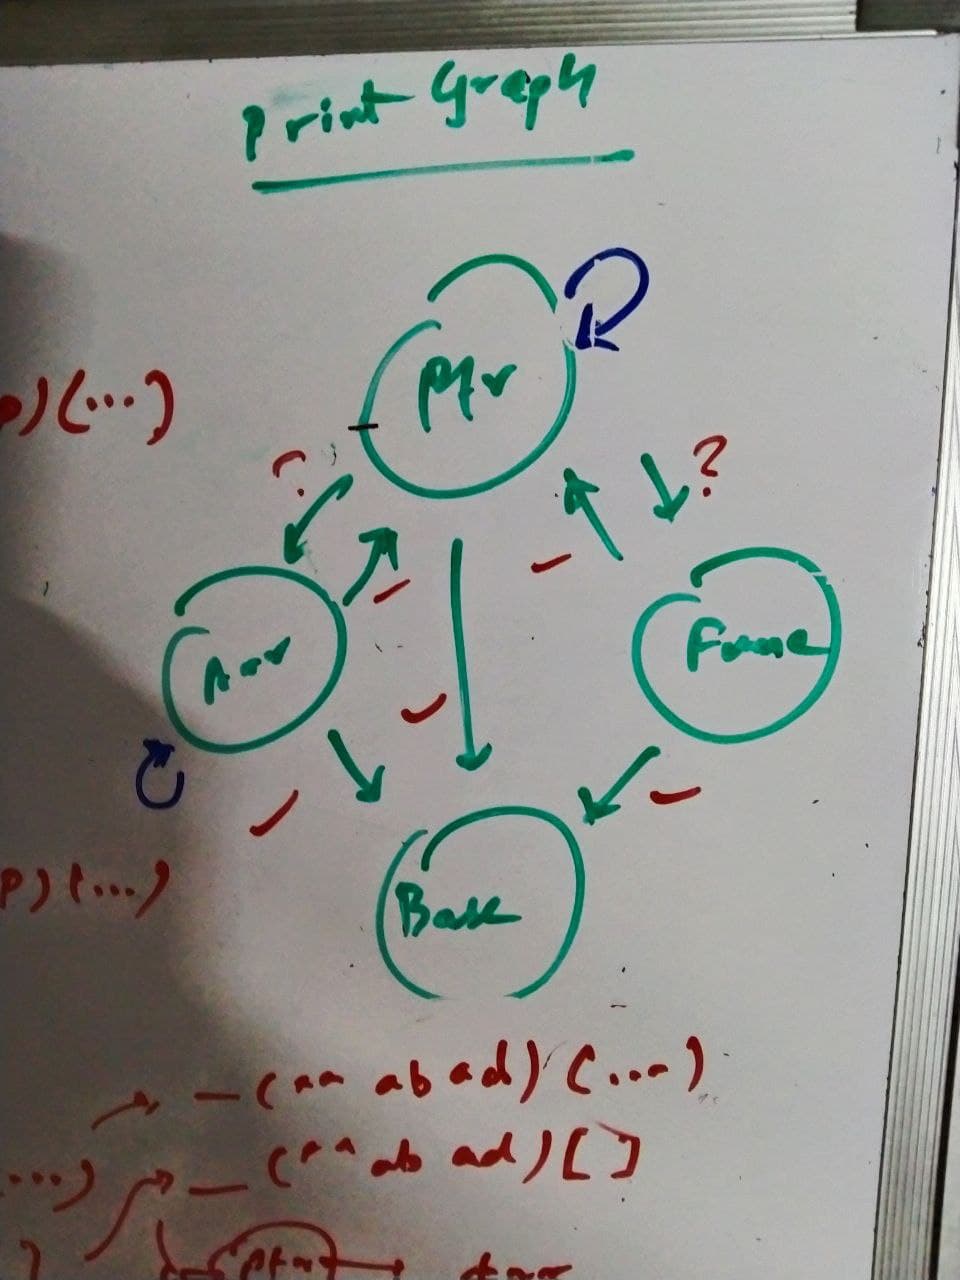 Print Graph
Ptr
)(...)
?
?
Arr
Base
p)(...)
— (** ab ad) (...)
...)
— (** ab ad) []